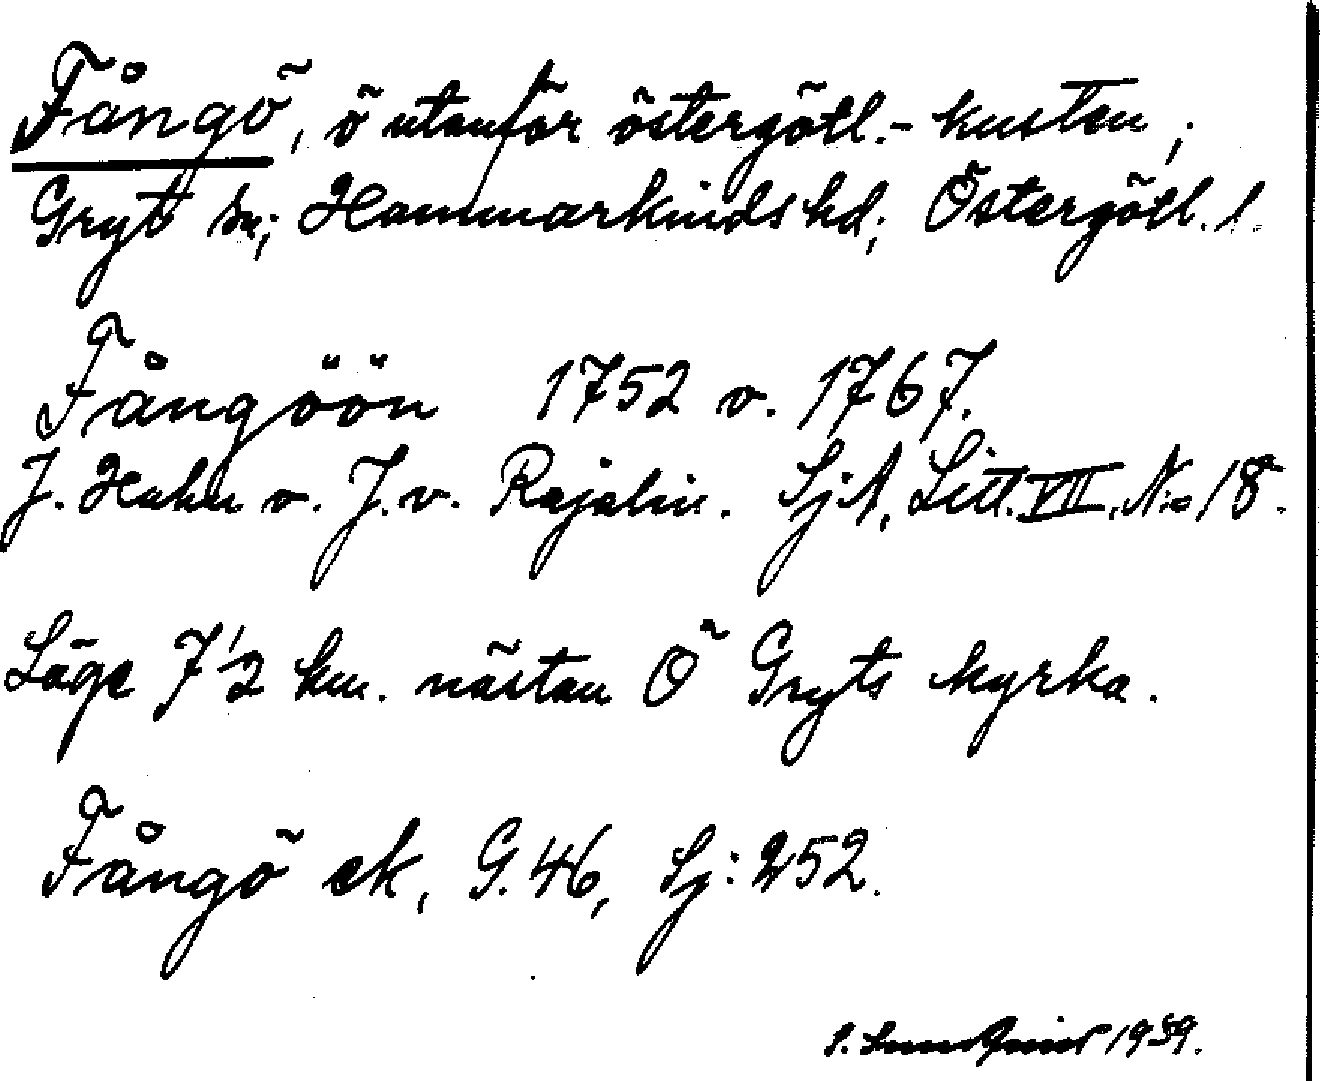 Fångö, ö utanför östergötl.-kusten;
Gryt sn; Hammarkinds hd; Östergötl. l.
Fångöön 1752 o. 1767.
J. Hahn o. J. v. Rajalin. SjA, Litt. VII, No 18.
Läge 7 1/2 km. nästan Ö Gryts kyrka.
Fångö ek, G. 46, Sj: 252.
1959.